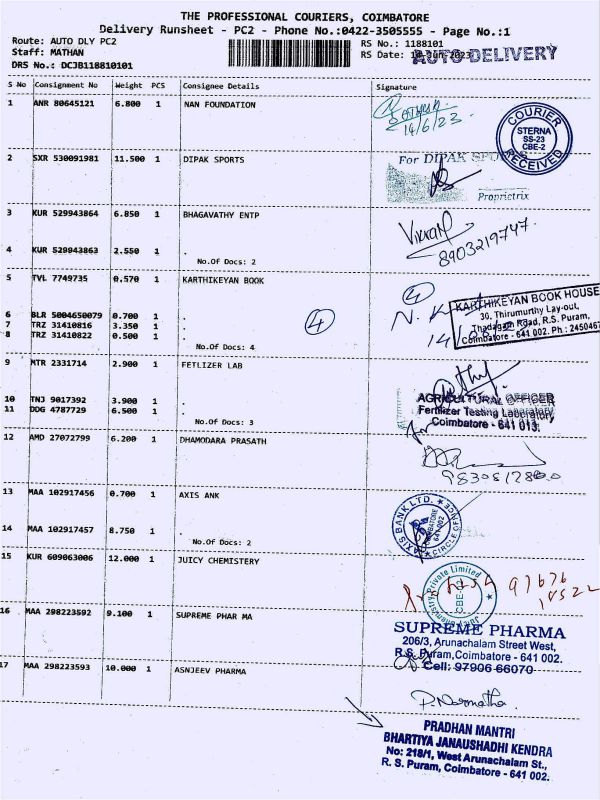 THE PROFESSIONAL COURIERS, COIMBATORE
Delivery Runsheet - PC2 - Phone No.:0422-3505555 - Page No.:1
Route: AUTO DLY PC2
RS No.: 1188101
Staff: MATHAN
RS Date: 14-Jun-2023
AUTO DELIVERY
DRS No.: DCJB118810101
S No Consignment No Weight PCS Consignee Details Signature
1 ANR 80645121 6.800 1 NAN FOUNDATION
14/6/23
COURIER
STERNA
SS-23
CBE-2
RECEIVED
2 SXR 530091981 11.500 1 DIPAK SPORTS
For DIPAK SPORTS
Proprietrix
3 KUR 529943864 6.850 1 BHAGAVATHY ENTP
8903219747
4 KUR 529943863 2.550 1 .
No.Of Docs: 2
5 TVL 7749735 0.570 1 KARTHIKEYAN BOOK
4
KARTHIKEYAN BOOK HOUSE
30, Thirumurthy Lay-out,
Thadagam Road, R.S. Puram,
Coimbatore - 641 002. Ph.: 2450467
6 BLR 5004650079 0.700 1 .
4
7 TRZ 31410816 3.350 1 .
8 TRZ 31410822 0.500 1 .
No.Of Docs: 4
9 MTR 2331714 2.900 1 FETLIZER LAB
10 TNJ 9017392 3.900 1 .
11 DDG 4787729 6.500 1 .
No.Of Docs: 3
AGRICULTURAL OFFICER
Fertilizer Testing Laboratory
Coimbatore - 641 013.
for
12 AMD 27072799 6.200 1 DHAMODARA PRASATH
13 MAA 102917456 0.700 1 AXIS ANK
AXIS BANK LTD.
COIMBATORE
641 002
CIRCLE OFFICE
14 MAA 102917457 8.750 1 .
No.Of Docs: 2
15 KUR 609063006 12.000 1 JUICY CHEMISTERY
Juicy Chemistry Private Limited
97676
16 MAA 298223592 9.100 1 SUPREME PHAR MA
SUPREME PHARMA
206/3, Arunachalam Street West,
R.S. Puram, Coimbatore - 641 002.
Cell: 97906 66070
17 MAA 298223593 10.000 1 ASNJEEV PHARMA
P. Narmatha.
PRADHAN MANTRI
BHARTIYA JANAUSHADHI KENDRA
No: 218/1, West Arunachalam St.,
R. S. Puram, Coimbatore - 641 002.